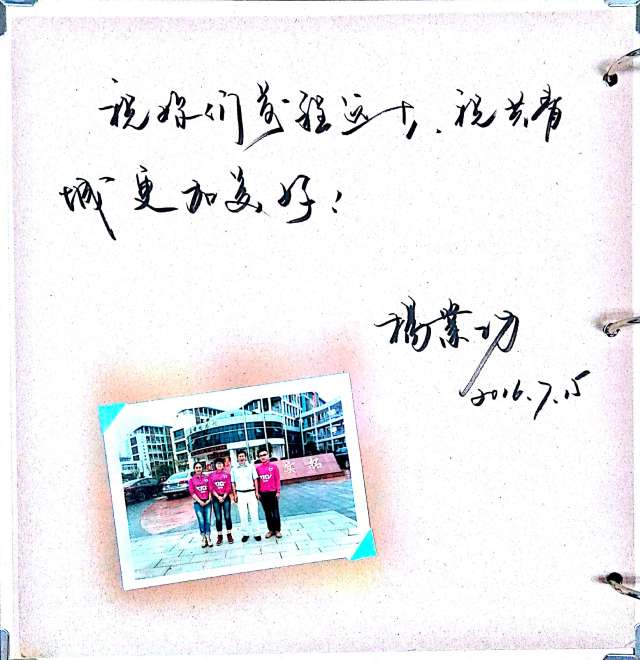 祝你们前程远大,祝共青
城更加美好!
楊業功
2016.7.15